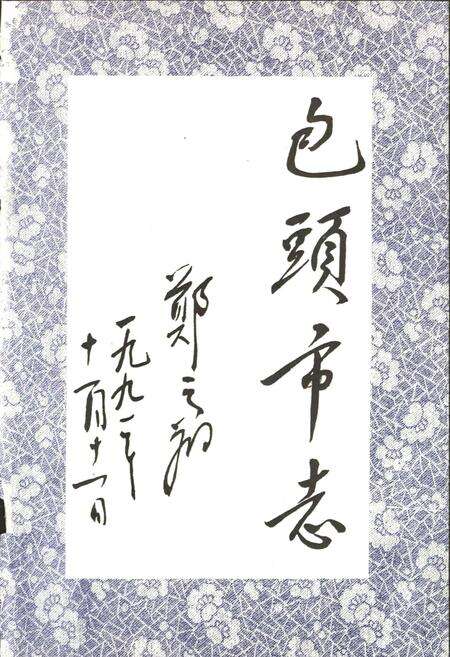 包頭市志
鄭天翔
一九九一年
十一月十一日